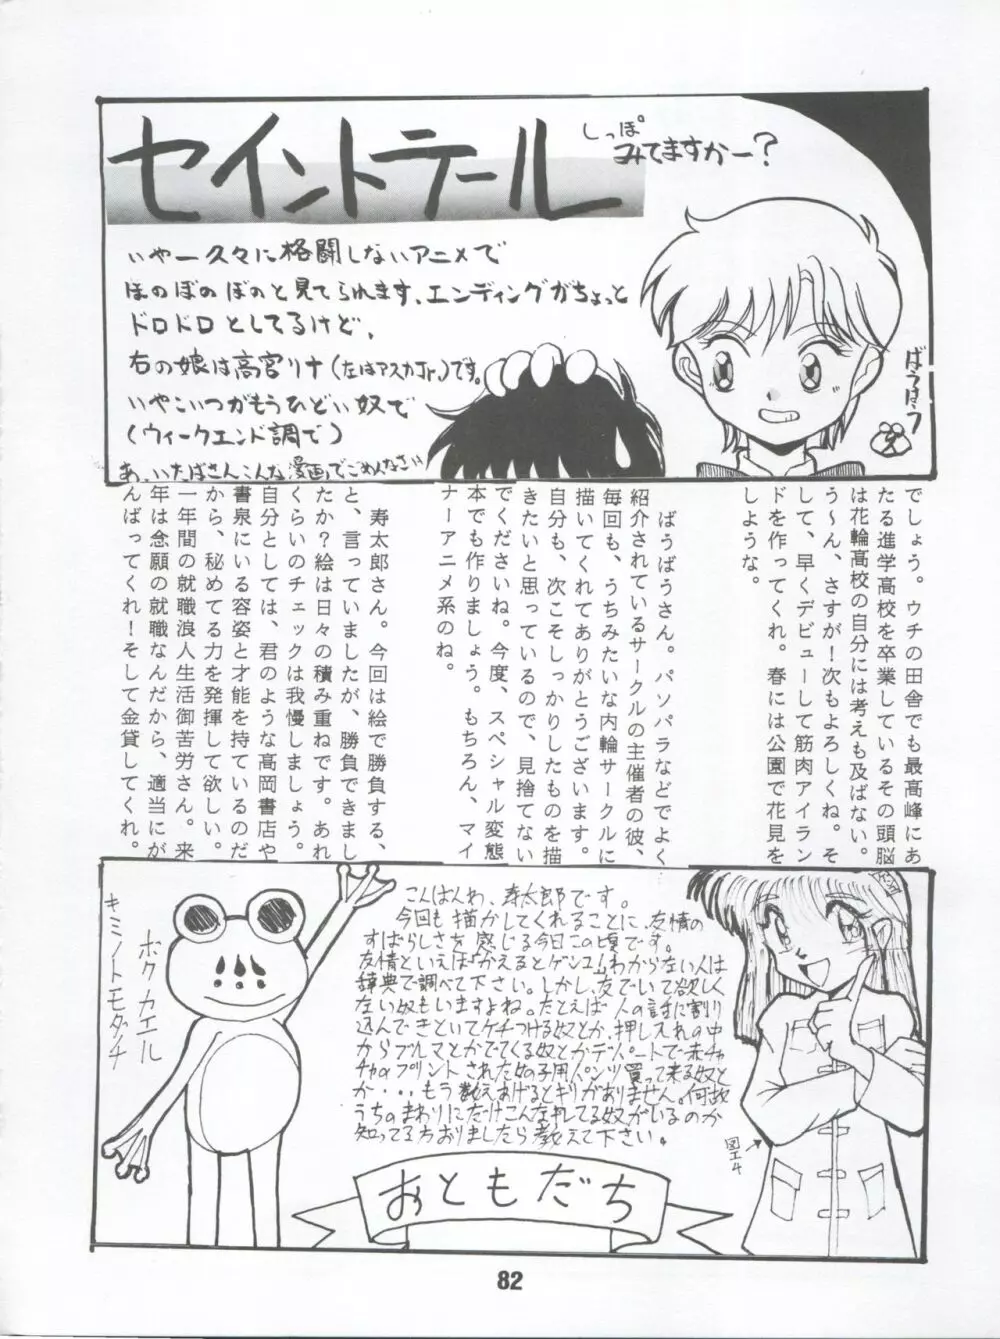 セイントテール
しっぽ
みてますかー?
いやー久々に格闘しないアニメで
ほのぼのぼのと見てられます、エンディングがちょっと
ドロドロとしてるけど、
右の娘は高宮リナ(左はアスカJr.)です。
いやこいつがもうひどい奴で
(ウィークエンド調で)
あ、いたばさんこんな漫画でごめんなさい
ばうばう
でしょう。ウチの田舎でも最高峰にあ
たる進学高校を卒業しているその頭脳
は花輪高校の自分には考えも及ばない。
う~ん、さすが!次もよろしくね。そ
して、早くデビューして筋肉アイラン
ドを作ってくれ。春には公園で花見を
しような。
ばうばうさん。パソパラなどでよく
紹介されているサークルの主催者の彼、
毎回も、うちみたいな内輪サークルに
描いてくれてありがとうございます。
自分も、次こそしっかりしたものを描
きたいと思っているので、見捨てない
でくださいね。今度、スペシャル変態
本でも作りましょう。もちろん、マイ
ナーアニメ系のね。
寿太郎さん。今回は絵で勝負する、
と、言っていましたが、勝負できまし
たか?絵は日々の積み重ねです。あれ
くらいのチェックは我慢しましょう。
自分としては、君のような高岡書店や
書泉にいる容姿と才能を持ているのだ
から、秘めてる力を発揮して欲しい。
一年間の就職浪人生活御苦労さん。来
年は念願の就職なんだから、適当にが
んばってくれ!そして金貸してくれ。
こんばんわ、寿太郎です。
今回も描かしてくれることに、友情の
すばらしさを感じる今日この頃です。
友情といえば「かえるとゲンコ」わからない人は
辞典で調べて下さい。しかし、友でいて欲しく
ない奴もいますよね。たとえば人の話に割り
込んできといてケチつける奴とか、押し入れの中
からブルマとかでてくる奴とかデパートで赤チャ
チャのプリントされた女の子用パンツ買って来る奴と
か・・・もう数えあげるとキリがありません。何故
うちのまわりにだけこんな
てる奴がいるのか
知ってる方おりましたら教えて下さい。
ボクカエル
キミノトモダッチ
図工4
おともだち
82